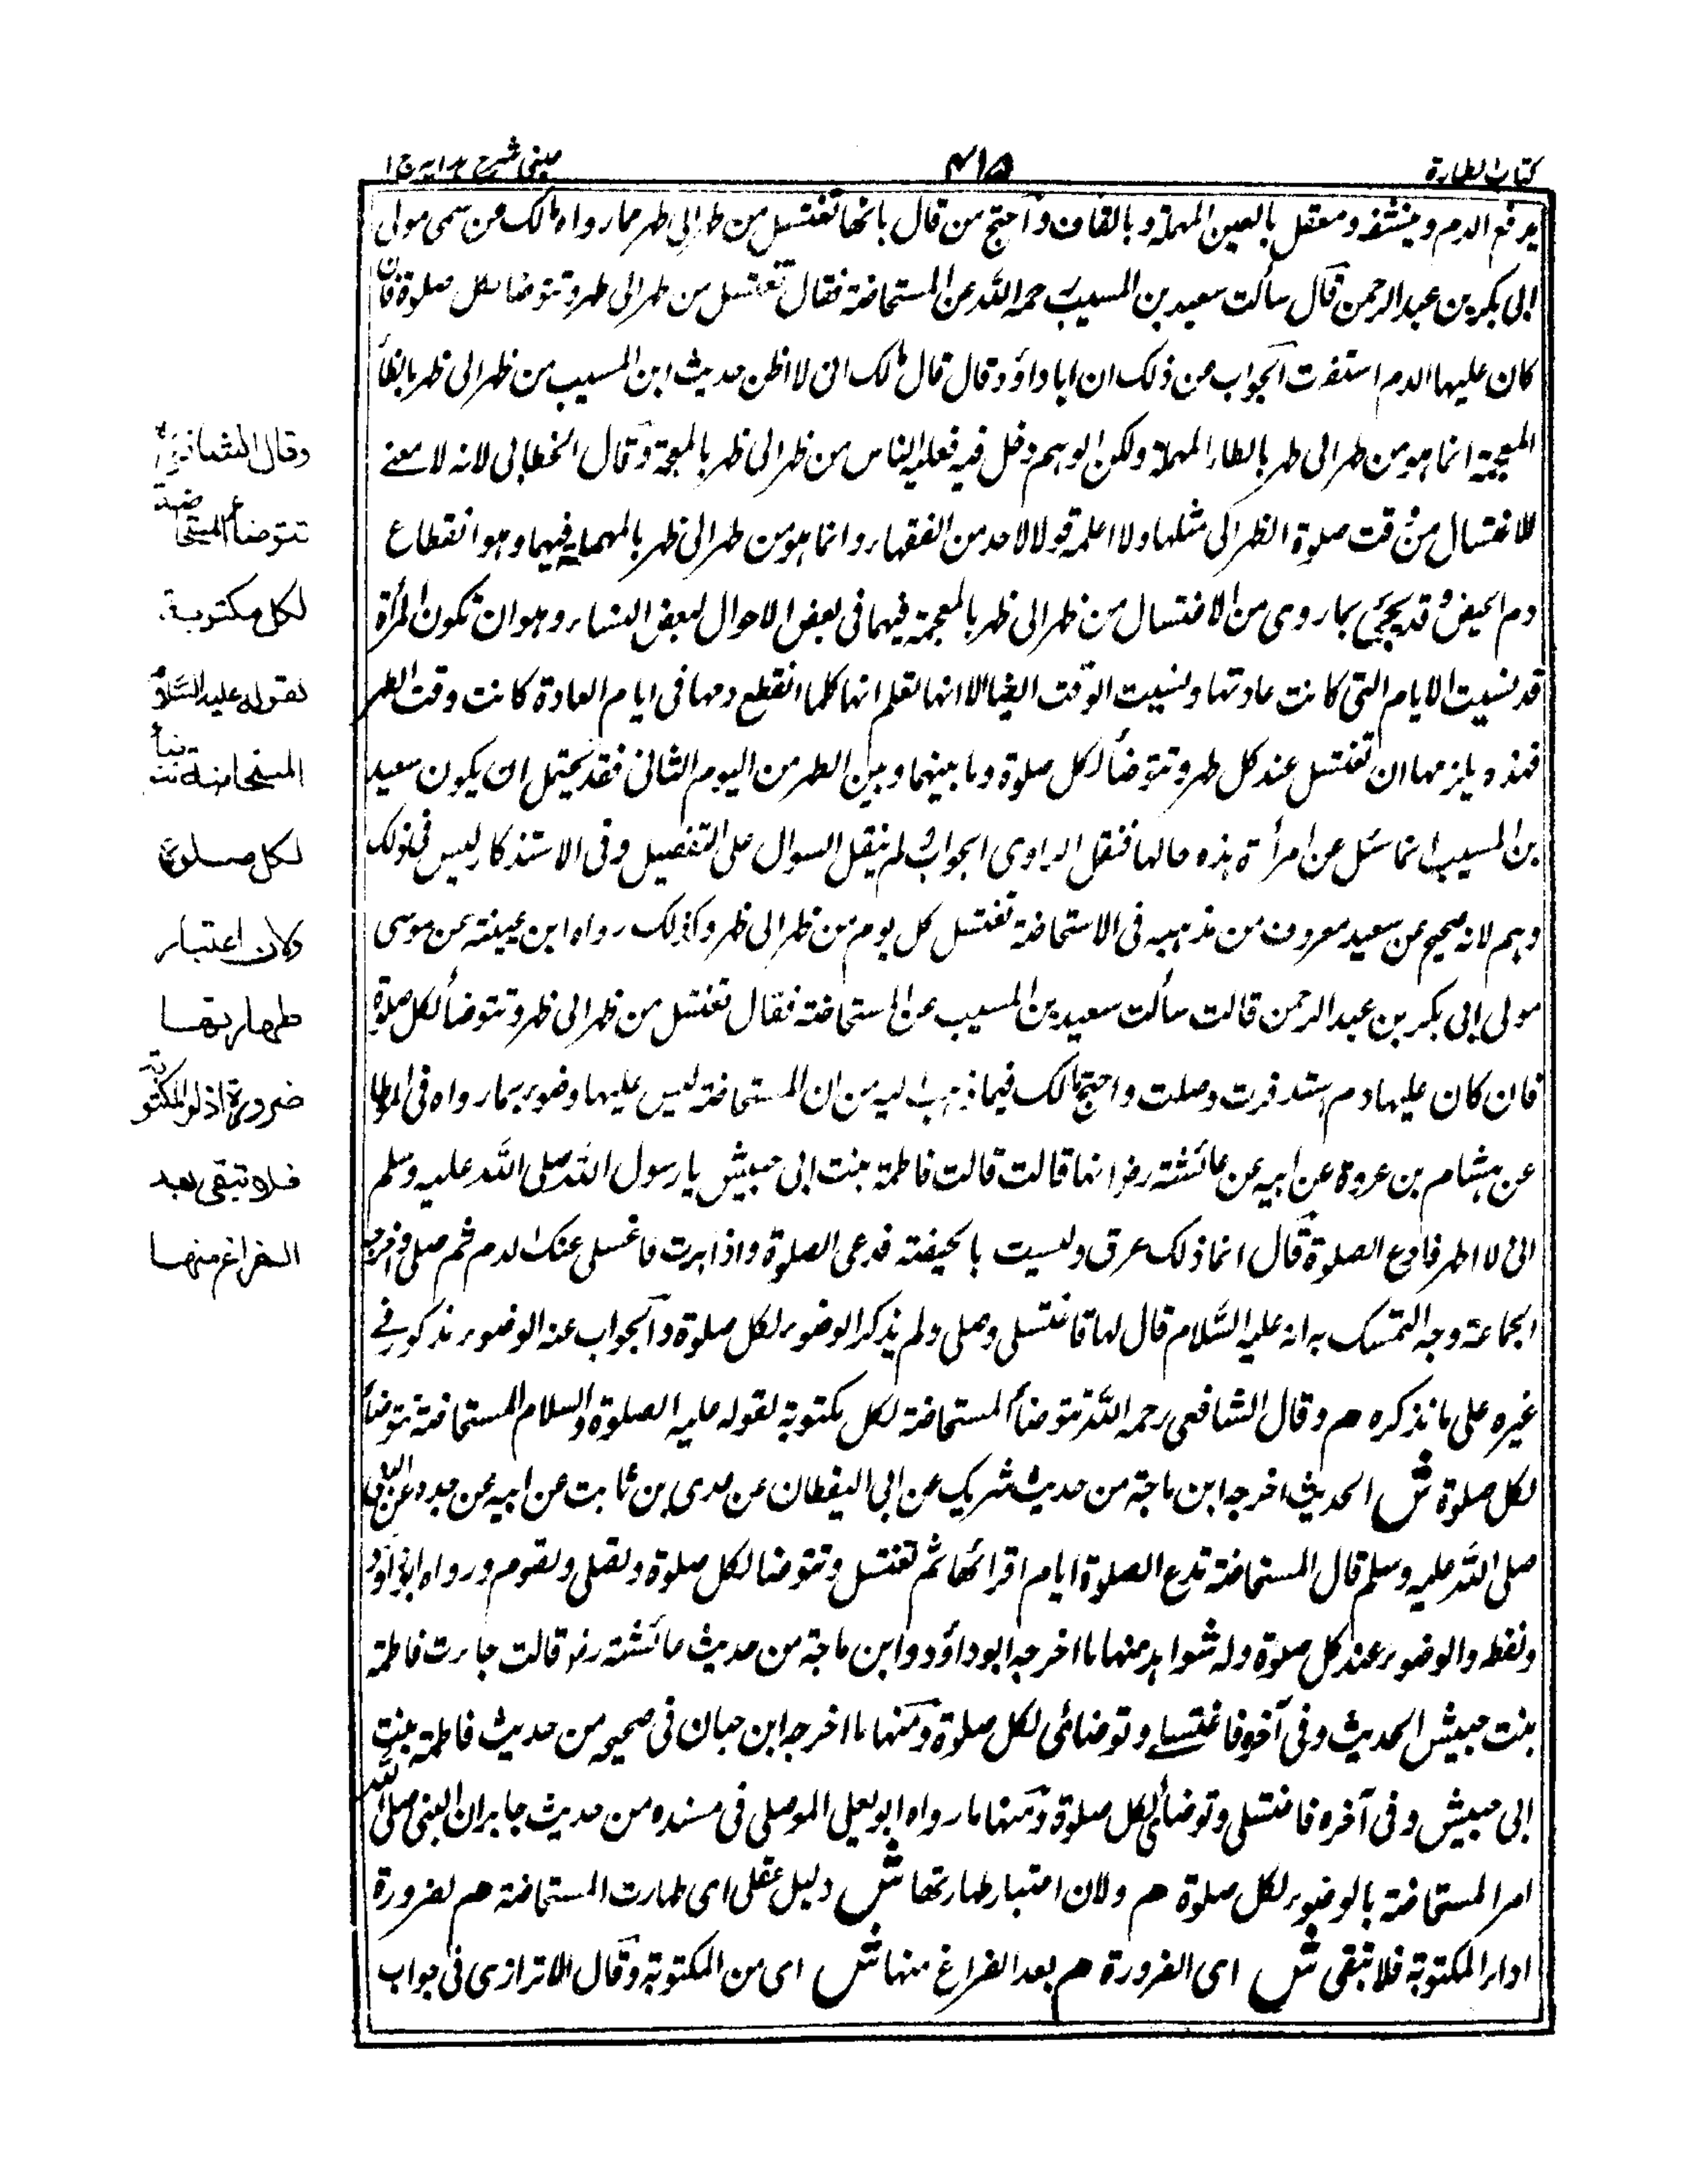 كتاب الطهارة
٤١٥
عينى شرح هدايه ج ١
يدفع الدم وينشفه ومعقل بالعين المهملة وبالقاف واحتج من قال بانها تغتسل من طهر الى طهر مما رواه مالك عن سمى مولى
ابى بكر بن عبد الرحمن قال سألت سعيد بن المسيب رحمه الله عن المستحاضة فقال تغتسل من طهر الى طهر وتتوضا لكل صلوة فان
كان عليها الدم استفرت الجواب من ذلك ان ابا داؤد قال قال مالك انى لاظن حديث ابن المسيب من ظهر الى ظهر بالظاء
المعجمة انما هو من طهر الى طهر بالطاء المهملة ولكن الوهم دخل فيه فعليه الناس من ظهر الى ظهر بالمعجمة وقال الخطابى لانه لا معنے
للاغتسال من وقت صلوة الظهر الى مثلها ولا اعلمه قولا لاحد من الفقهاء وانما هو من طهر الى طهر بالمهملة فيهما وهو انقطاع
دم الحيض وقد يجئ بما روى من الاغتسال من ظهر الى ظهر بالمعجمة فيهما فى بعض الاحوال لبعض النساء وهو ان تكون المرأة
قد نسيت الايام التى كانت عادتها ونسيت الوقت ايضا الا انها تعلم انها كلما انقطع دمها فى ايام العادة كانت وقت الظهر
فهذه يلزمها ان تغتسل عند كل طهر وتتوضأ لكل صلوة وما بينهما وبين الطهر من اليوم الثانى فقد يحتمل ان يكون سعيد
بن المسيب انما سئل عن امرأة هذه حالها فنقل الراوى الجواب ولم ينقل السوال على التفصيل وفى الاستذكار ليس فى ذلك
وهم لانه صحيح عن سعيد معروف من مذهبه فى الاستحاضة تغتسل كل يوم من ظهر الى ظهر وكذلك رواه ابن عيينة عن موسى
مولى ابى بكر بن عبد الرحمن قالت سألت سعيد بن المسيب عن المستحاضة فقال تغتسل من ظهر الى ظهر وتتوضأ لكل صلوة
فان كان عليها دم استدفرت وصلت واحتج مالك فيما ذهب اليه من ان المستحاضة ليس عليها وضوء بما رواه فى الموطا
عن هشام بن عروة عن ابيه عن عائشة رض انها قالت قالت فاطمة بنت ابى حبيش يا رسول الله صلى الله عليه وسلم
انى لا اطهر فادع الصلوة قال انما ذلك عرق وليست بالحيضة فدعى الصلوة واذا ادبرت فاغسلى عنك الدم ثم صلى واخرجه
الجماعة وجه التمسك به انه عليه السلام قال لها فاغتسلى وصلى ولم يذكر الوضوء لكل صلوة والجواب عنه الوضوء مذكور فے
غيره على ما نذكره هم وقال الشافعى رحمه الله تتوضأ المستحاضة لكل مكتوبة لقوله عليه الصلوة والسلام المستحاضة تتوضأ
لكل صلوة ش الحديث اخرجه ابن ماجة من حديث شريك عن ابى اليقظان عن عدى بن ثابت عن ابيه عن جده عن النبى
صلى الله عليه وسلم قال المستحاضة تدع الصلوة ايام اقرائها ثم تغتسل وتتوضا لكل صلوة وتصلى وتصوم ورواه ابو داؤد
ولفظه والوضوء عند كل صلوة وله شواهد منها ما اخرجه ابو داؤد وابن ماجة من حديث عائشة رض قالت جاءت فاطمة
بنت حبيش الحديث وفى آخره فاغتسلے وتوضائى لكل صلوة ومنها ما اخرجه ابن حبان فى صحيحه من حديث فاطمة بنت
ابى حبيش وفى آخره فاغتسلى وتوضأى لكل صلوة ومنها ما رواه ابو يعلى الموصلى فى مسنده من حديث جابر ان النبى صلى الله
امر المستحاضة بالوضوء لكل صلوة هم ولان اعتبار طهارتها ش دليل عقلى اى طهارت المستحاضة هم لضرورة
اداء المكتوبة فلا تبقى ش اى الضرورة هم بعد الفراغ منها ش اى من المكتوبة وقال الاترازى فى جواب
وقال الشافعىؒ
تتوضأ المستحاضة
لكل مكتوبة
لقوله عليه السلام
المستحاضة تتوضأ
لكل صلوة
ولان اعتبار
طهارتها
ضرورة اداء المكتوبة
فلا تبقى بعد
الفراغ منها